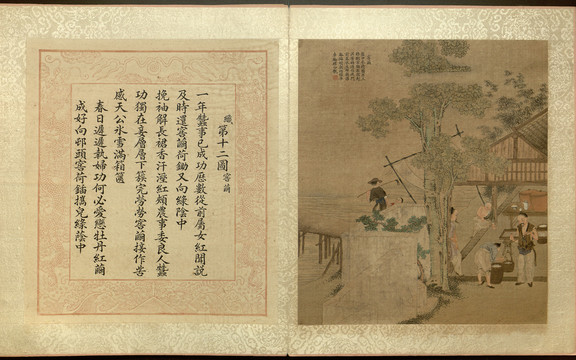 織 第十二圖 窖繭
一年蠶事已成功厯數從前屬女紅聞說
及時還窖繭荷鋤又向綠陰中
挽袖解長裙香汗溼紅頰農事委良人蠶
功獨在妾層層下簇完勞勞窖繭接作苦
感天公氷雪滿箱篋
春日遲遲執婦功何必愛戀牡丹紅繭
成好向邨頭窖荷鍤攜兒綠蔭中